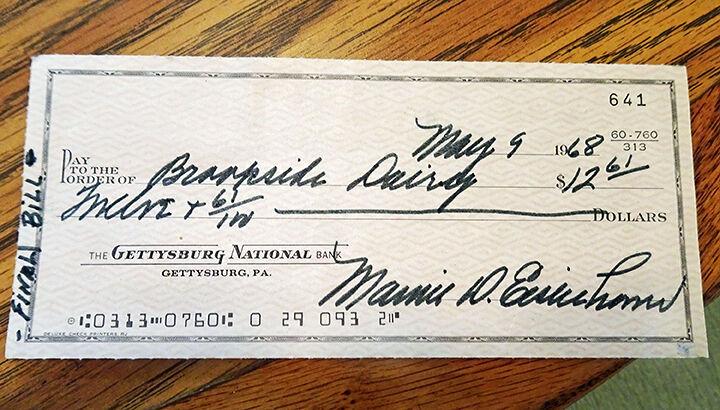 641
May 9 1968 60-760
313
PAY
TO THE
ORDER OF Brookside Dairy $12 61/
Twelve + 61/100 DOLLARS
THE GETTYSBURG NATIONAL BANK
GETTYSBURG, PA.
Mamie D. Eisenhower
⑆0313⑉0760⑆ 0 29 093 2⑈
DELUXE CHECK PRINTERS, NJ
- FINAL BILL -